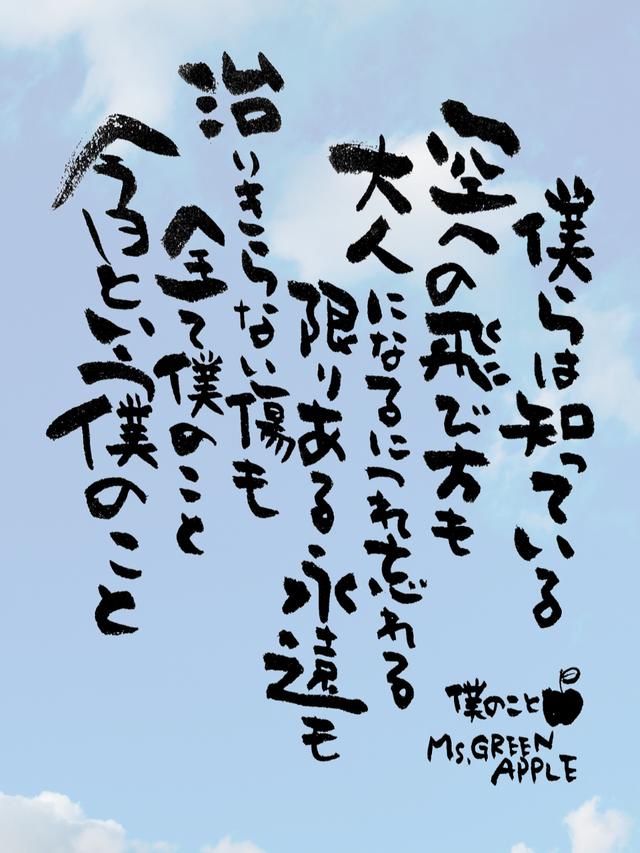 僕らは知っている
空への飛び方も
大人になるにつれ忘れる
限りある永遠も
治りきらない傷も
全て僕のこと
今日という僕のこと
僕のこと
Ms.GREEN
APPLE